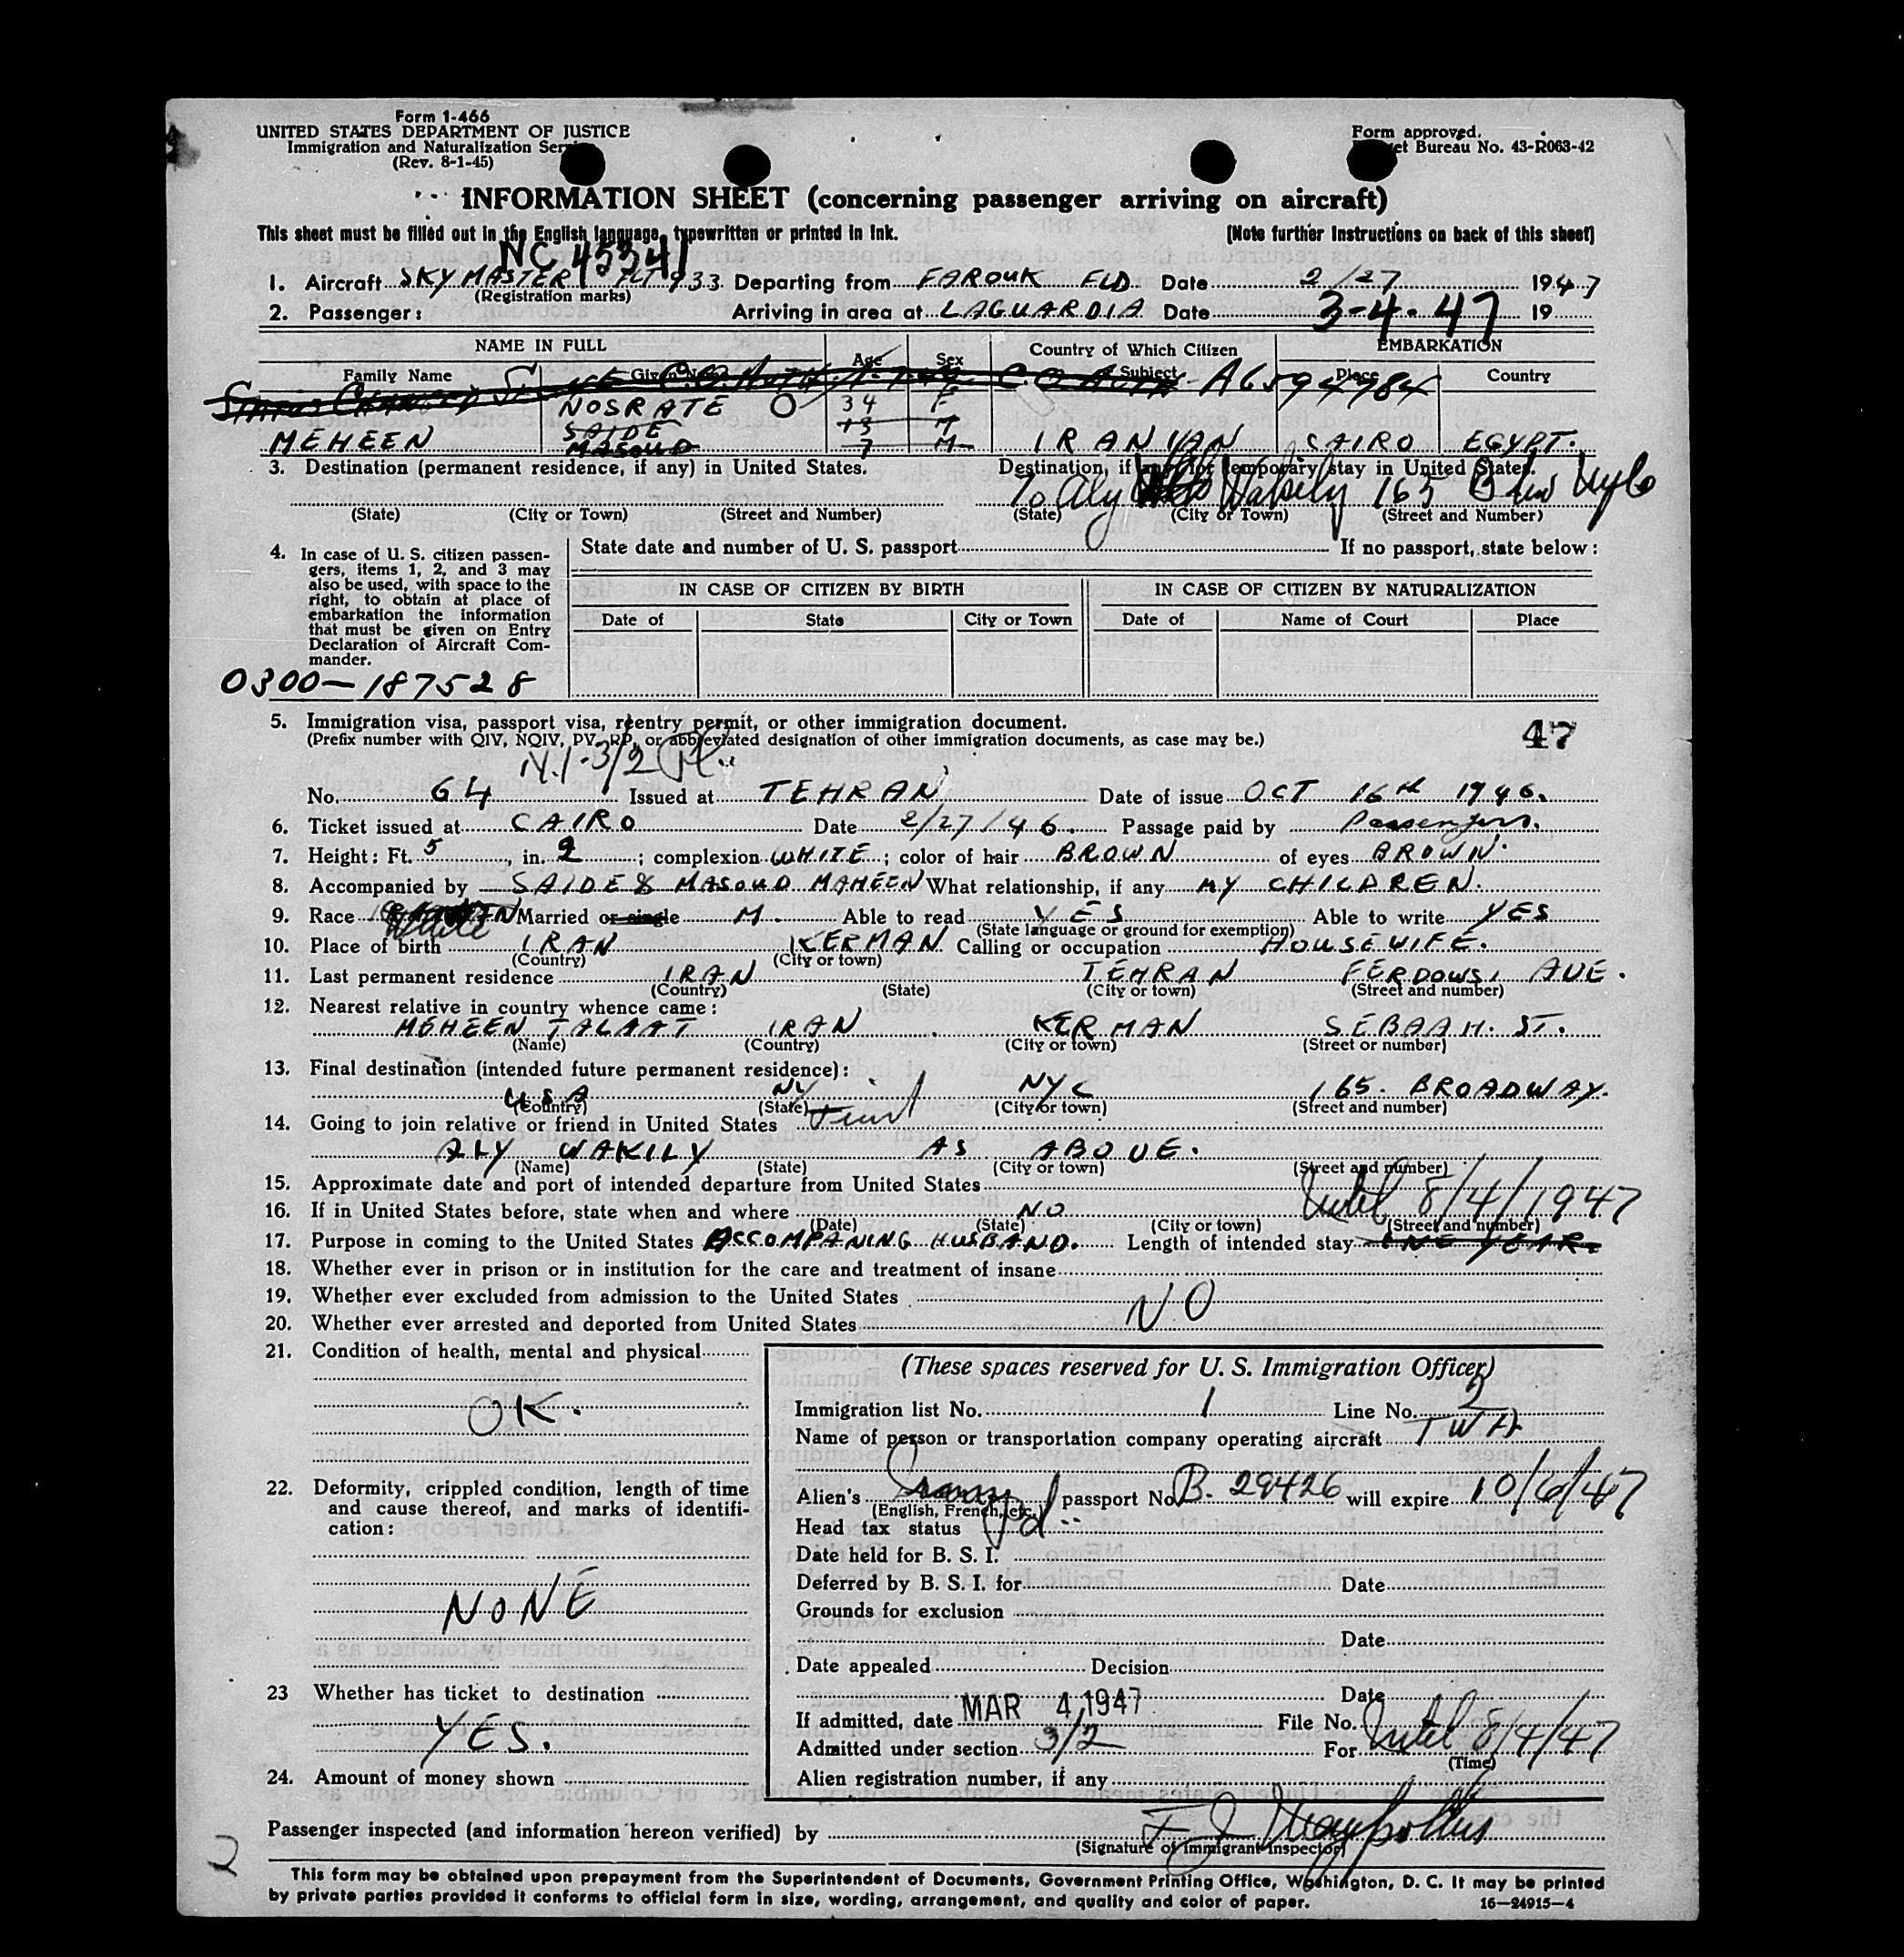 Form 1-466
UNITED STATES DEPARTMENT OF JUSTICE
Immigration and Naturalization
(Rev. 8-1-45)
Form approved.
Bureau No. 43-R063-42
INFORMATION SHEET (concerning passenger arriving on aircraft)
This sheet must be filled out in the English language, typewritten or printed in ink.
[Note further instructions on back of this sheet]
NC 45341
1. Aircraft SKYMASTER FLT 933 Departing from FAROUK FLD Date 2/27 1947
(Registration marks)
2. Passenger: Arriving in area at LAGUARDIA Date 3-4-47 19
NAME IN FULL Age Sex Country of Which Citizen Subject EMBARKATION
Family Name Given Name Place Country
NOSRATE 34 F
SAIDE 13 M
MEHEEN MASOUD 7 M IRANIAN CAIRO EGYPT.
3. Destination (permanent residence, if any) in United States. Destination, if any, for temporary stay in United States.
To Aly Wakily 165
(State) (City or Town) (Street and Number) (State) (City or Town) (Street and Number)
4. In case of U. S. citizen passen-
gers, items 1, 2, and 3 may
also be used, with space to the
right, to obtain at place of
embarkation the information
that must be given on Entry
Declaration of Aircraft Com-
mander.
State date and number of U. S. passport If no passport, state below:
IN CASE OF CITIZEN BY BIRTH IN CASE OF CITIZEN BY NATURALIZATION
Date of State City or Town Date of Name of Court Place
0300-187528
5. Immigration visa, passport visa, reentry permit, or other immigration document.
(Prefix number with QIV, NQIV, PV, RP, or abbreviated designation of other immigration documents, as case may be.)
47
No. 64 Issued at TEHRAN Date of issue OCT 16th 1946.
6. Ticket issued at CAIRO Date 2/27/46. Passage paid by Passengers.
7. Height: Ft. 5, in. 2; complexion WHITE; color of hair BROWN of eyes BROWN.
8. Accompanied by SAIDE & MASOUD MAHEEN What relationship, if any MY CHILDREN.
9. Race White Married or single M. Able to read YES Able to write YES
(State language or ground for exemption)
10. Place of birth IRAN KERMAN Calling or occupation HOUSEWIFE.
(Country) (City or town)
11. Last permanent residence IRAN TEHRAN FERDOWSI AVE.
(Country) (State) (City or town) (Street and number)
12. Nearest relative in country whence came:
MEHEEN TALAAT IRAN KERMAN SEBAAH. ST.
(Name) (Country) (City or town) (Street or number)
13. Final destination (intended future permanent residence):
USA NY NYC 165. BROADWAY.
(Country) (State) (City or town) (Street and number)
14. Going to join relative or friend in United States
ALY WAKILY AS ABOVE.
(Name) (State) (City or town) (Street and number)
15. Approximate date and port of intended departure from United States
Until 8/4/1947
16. If in United States before, state when and where NO
(Date) (State) (City or town) (Street and number)
17. Purpose in coming to the United States ACCOMPANING HUSBAND. Length of intended stay ONE YEAR.
18. Whether ever in prison or in institution for the care and treatment of insane
19. Whether ever excluded from admission to the United States
NO
20. Whether ever arrested and deported from United States
21. Condition of health, mental and physical
OK.
22. Deformity, crippled condition, length of time
and cause thereof, and marks of identifi-
cation:
NONE
23 Whether has ticket to destination
YES.
24. Amount of money shown
(These spaces reserved for U. S. Immigration Officer)
Immigration list No. 1 Line No. 2
Name of person or transportation company operating aircraft TWA
Alien's passport No. B. 29426 will expire 10/6/47
(English, French, etc.)
Head tax status
Date held for B. S. I.
Deferred by B. S. I. for Date
Grounds for exclusion
Date
Date appealed Decision
Date
If admitted, date MAR 4 1947 File No.
Admitted under section 3/2 For Until 8/4/47
(Time)
Alien registration number, if any
Passenger inspected (and information hereon verified) by
(Signature of immigrant inspector)
2
This form may be obtained upon prepayment from the Superintendent of Documents, Government Printing Office, Washington, D. C. It may be printed
by private parties provided it conforms to official form in size, wording, arrangement, and quality and color of paper.
16—24915-4